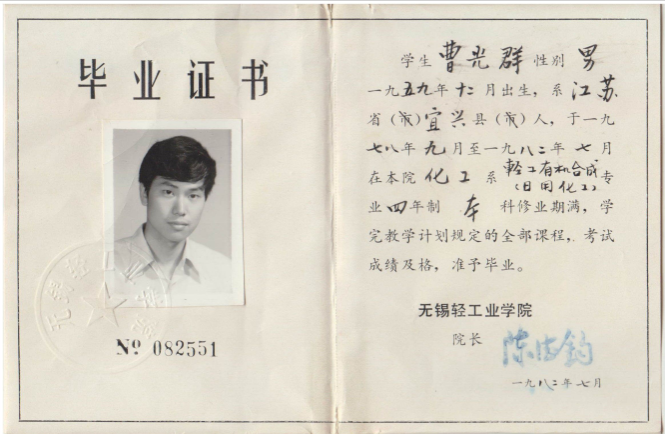 毕业证书
No 082551
学生 曹光群 性别 男
一九五九年十二月出生，系江苏
省（市）宜兴县（市）人，于一九
七八年九月至一九八二年七月
在本院 化工 系 轻工有机合成（日用化工）专
业四年制 本 科修业期满，学
完教学计划规定的全部课程，考试
成绩及格，准予毕业。
无锡轻工业学院
院长
一九八二年七月